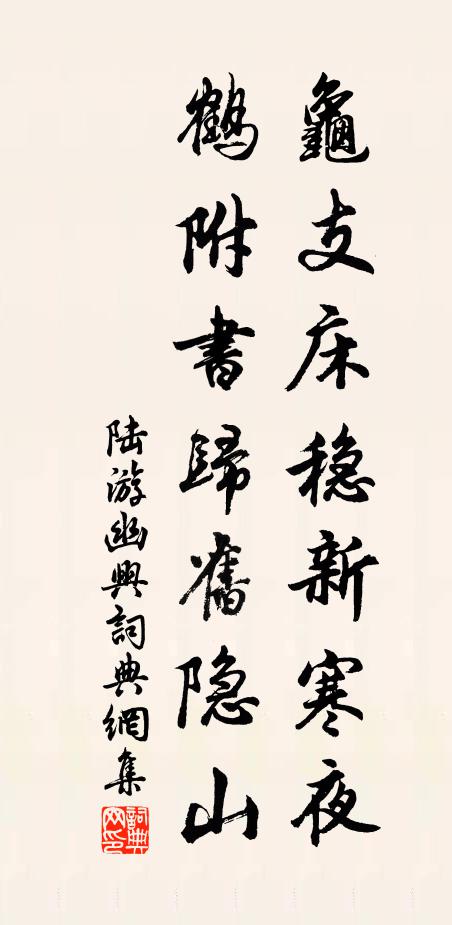 龜支床稳新寒夜
鶴附書歸舊隐山
陆游幽興詞典網集
詞典網印